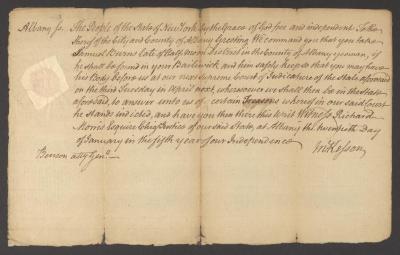 Albany ss. The People of the State of New York by the Grace of God free and independent To the
Sheriff of the City and County of Albany Greeting We command you that you take
Samuel Burns late of Half moon District in the County of Albany yeoman, if
he shall be found in your Bailiwick, and him safely keep so that you may have
his Body before us at our next Supreme Court of Judicature of the State aforesaid
on the third Tuesday in April next, wheresoever we shall then be in the State
aforesaid, to answer unto us of certain Treasons whereof in our said Court
he stands indicted, and have you then there this Writ Witness Richard
Morris Esquire Chief Justice of our said State, at Albany the twentieth Day
of January in the fifth year of our Independence
Benson atty Genl.